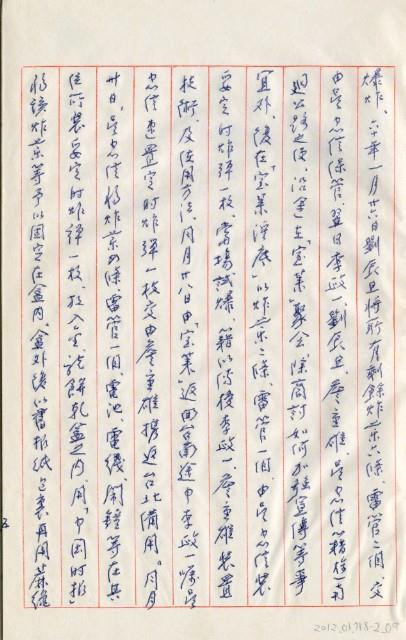 爆炸。六十年一月廿六日劉辰旦將所有剩餘炸藥六條、雷管二個、交
由吳忠信保管。翌日李政一、劉辰旦、詹重雄、吳忠信藉橫南
迴公路之便、沿途在「室業」聚會、除商討如何加強宣傳等事
宜外、復在「室業洋底」以炸藥二條、雷管一個、由吳忠信裝
妥定時炸彈一枚、當場試爆、藉以傳授李政一、詹重雄裝置
技術、及使用方法、同月廿八日由「室業」返回台南途中李政一囑吳
忠信速置定時炸彈一枚交由詹重雄攜返台北備用。同月
卅日、吳忠信將炸藥四條雷管一個電池、電線、鬧鐘等在其
住所裝妥定時炸彈一枚、放入空餅乾盒之內、用「中國時報」
將該炸藥等予以固定在盒內、盒外復以舊報紙包裹再用麻繩
2012.01.718-2_09